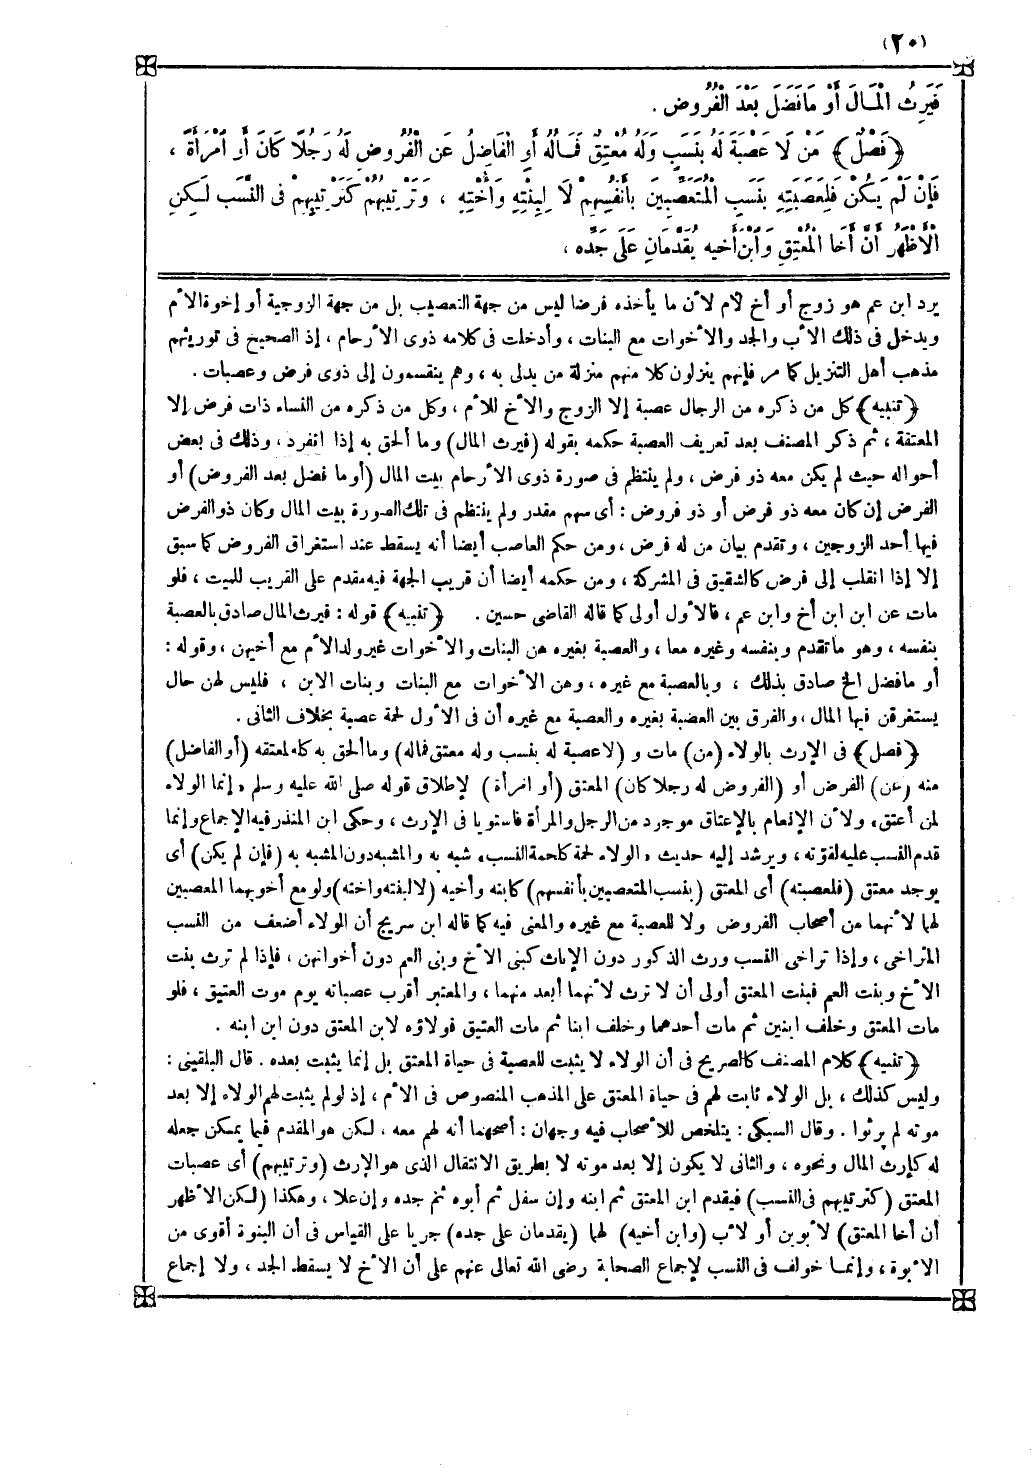 (٢٠)
فَيَرِثُ الْمَالَ أَوْ مَا فَضَلَ بَعْدَ الْفُرُوضِ .
﴿فَصْلٌ﴾ مَنْ لَا عَصَبَةَ لَهُ بِنَسَبٍ وَلَهُ مُعْتِقٌ فَمَالُهُ أَوِ الْفَاضِلُ عَنِ الْفُرُوضِ لَهُ رَجُلًا كَانَ أَوِ امْرَأَةً ،
فَإِنْ لَمْ يَكُنْ فَلِعَصَبَتِهِ بِنَسَبٍ الْمُتَعَصِّبِينَ بِأَنْفُسِهِمْ لَا لِبِنْتِهِ وَأُخْتِهِ ، وَتَرْتِيبُهُمْ كَتَرْتِيبِهِمْ فِى النَّسَبِ لَكِنِ
الْأَظْهَرُ أَنَّ أَخَا الْمُعْتِقِ وَابْنَ أَخِيهِ يُقَدَّمَانِ عَلَى جَدِّهِ ،
يرد ابن عم هو زوج أو أخ لأم لأن ما يأخذه فرضا ليس من جهة التعصيب بل من جهة الزوجية أو إخوة الأم
ويدخل فى ذلك الأب والجد والأخوات مع البنات ، وأدخلت فى كلامه ذوى الأرحام ، إذ الصحيح فى توريثهم
مذهب أهل التنزيل كما مر فإنهم ينزلون كلا منهم منزلة من يدلى به ، وهم ينقسمون إلى ذوى فرض وعصبات .
﴿تنبيه﴾ كل من ذكره من الرجال عصبة إلا الزوج والأخ للأم ، وكل من ذكره من النساء ذات فرض إلا
المعتقة ، ثم ذكر المصنف بعد تعريف العصبة حكمه بقوله (فيرث المال) وما ألحق به إذا انفرد ، وذلك فى بعض
أحواله حيث لم يكن معه ذو فرض ، ولم ينتظم فى صورة ذوى الأرحام بيت المال (أو ما فضل بعد الفروض) أو
الفرض إن كان معه ذو فرض أو ذو فروض : أى سهم مقدر ولم ينتظم فى تلك الصورة بيت المال وكان ذو الفرض
فيها أحد الزوجين ، وتقدم بيان من له فرض ، ومن حكم العاصب أيضا أنه يسقط عند استغراق الفروض كما سبق
إلا إذا انقلب إلى فرض كالشقيق فى المشركة ، ومن حكمه أيضا أن قريب الجهة فيه مقدم على القريب للميت ، فلو
مات عن ابن ابن أخ وابن عم ، فالأول أولى كما قاله القاضى حسين . ﴿تنبيه﴾ قوله : فيرث المال صادق بالعصبة
بنفسه ، وهو ما تقدم وبنفسه وغيره معا ، والعصبة بغيره هن البنات والأخوات غير ولد الأم مع أخيهن ، وقوله :
أو ما فضل الخ صادق بذلك ، وبالعصبة مع غيره ، وهن الأخوات مع البنات وبنات الابن ، فليس لهن حال
يستغرقن فيها المال ، والفرق بين العصبة بغيره والعصبة مع غيره أن فى الأول ثمة عصبة بخلاف الثانى .
﴿فصل﴾ فى الإرث بالولاء (من) مات و (لا عصبة له بنسب وله معتق فماله) وما ألحق به كله لمعتقه (أو الفاضل)
منه (عن) الفرض أو (الفروض له رجلا كان) المعتق (أو امرأة) لإطلاق قوله صلى الله عليه وسلم «إنما الولاء
لمن أعتق» ولأن الإنعام بالإعتاق موجود من الرجل والمرأة فاستويا فى الإرث ، وحكى ابن المنذر فيه الإجماع وإنما
قدم النسب عليه لقوته ، ويرشد إليه حديث «الولاء لحمة كلحمة النسب» شبه به والمشبه دون المشبه به (فإن لم يكن) أى
يوجد معتق (فلعصبته) أى المعتق (بنسب المتعصبين بأنفسهم) كابنه وأخيه (لا لبنته وأخته) ولو مع أخويهما المعصبين
لهما لأنهما من أصحاب الفروض ولا للعصبة مع غيره والمعنى فيه كما قاله ابن سريج أن الولاء أضعف من النسب
المتراخى ، وإذا تراخى النسب ورث الذكور دون الإناث كبنى الأخ وبنى العم دون أخواتهن ، فإذا لم ترث بنت
الأخ وبنت العم فبنت المعتق أولى أن لا ترث لأنهما أبعد منهما ، والمعتبر أقرب عصباته يوم موت العتيق ، فلو
مات المعتق وخلف ابنين ثم مات أحدهما وخلف ابنا ثم مات العتيق فولاؤه لابن المعتق دون ابن ابنه .
﴿تنبيه﴾ كلام المصنف كالصريح فى أن الولاء لا يثبت للعصبة فى حياة المعتق بل إنما يثبت بعده . قال البلقينى :
وليس كذلك ، بل الولاء ثابت لهم فى حياة المعتق على المذهب المنصوص فى الأم ، إذ لو لم يثبت لهم الولاء إلا بعد
موته لم يرثوا . وقال السبكى : يتلخص للأصحاب فيه وجهان : أصحهما أنه لهم معه ، لكن هو المقدم فيما يمكن جعله
له كإرث المال ونحوه ، والثانى لا يكون إلا بعد موته لا بطريق الانتقال الذى هو الإرث (وترتيبهم) أى عصبات
المعتق (كترتيبهم فى النسب) فيقدم ابن المعتق ثم ابنه وإن سفل ثم أبوه ثم جده وإن علا ، وهكذا (لكن الأظهر
أن أخا المعتق) لأبوين أو لأب (وابن أخيه) لهما (يقدمان على جده) جريا على القياس فى أن البنوة أقوى من
الأبوة ، وإنما خولف فى النسب لإجماع الصحابة رضى الله تعالى عنهم على أن الأخ لا يسقط الجد ، ولا إجماع